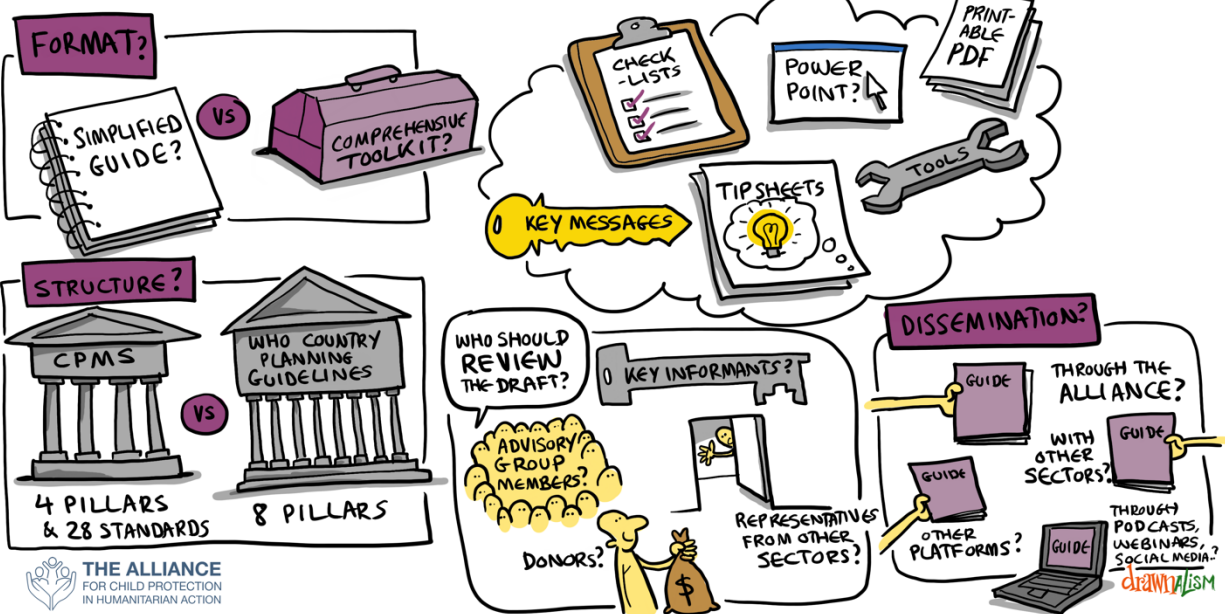 FORMAT?
SIMPLIFIED
GUIDE?
VS
COMPREHENSIVE
TOOLKIT?
CHECK
-LISTS
POWER
POINT?
PRINT-
ABLE
PDF
TOOLS
KEY MESSAGES
TIPSHEETS
STRUCTURE?
CPMS
VS
WHO COUNTRY
PLANNING
GUIDELINES
4 PILLARS
& 28 STANDARDS
8 PILLARS
WHO SHOULD
REVIEW
THE DRAFT?
KEY INFORMANTS?
ADVISORY
GROUP
MEMBERS?
DONORS?
$
REPRESENTATIVES
FROM OTHER
SECTORS?
DISSEMINATION?
GUIDE
THROUGH THE
ALLIANCE?
WITH
OTHER
SECTORS?
GUIDE
GUIDE
OTHER
PLATFORMS?
GUIDE
THROUGH
PODCASTS,
WEBINARS,
SOCIAL MEDIA..?
THE ALLIANCE
FOR CHILD PROTECTION
IN HUMANITARIAN ACTION
drawnalism